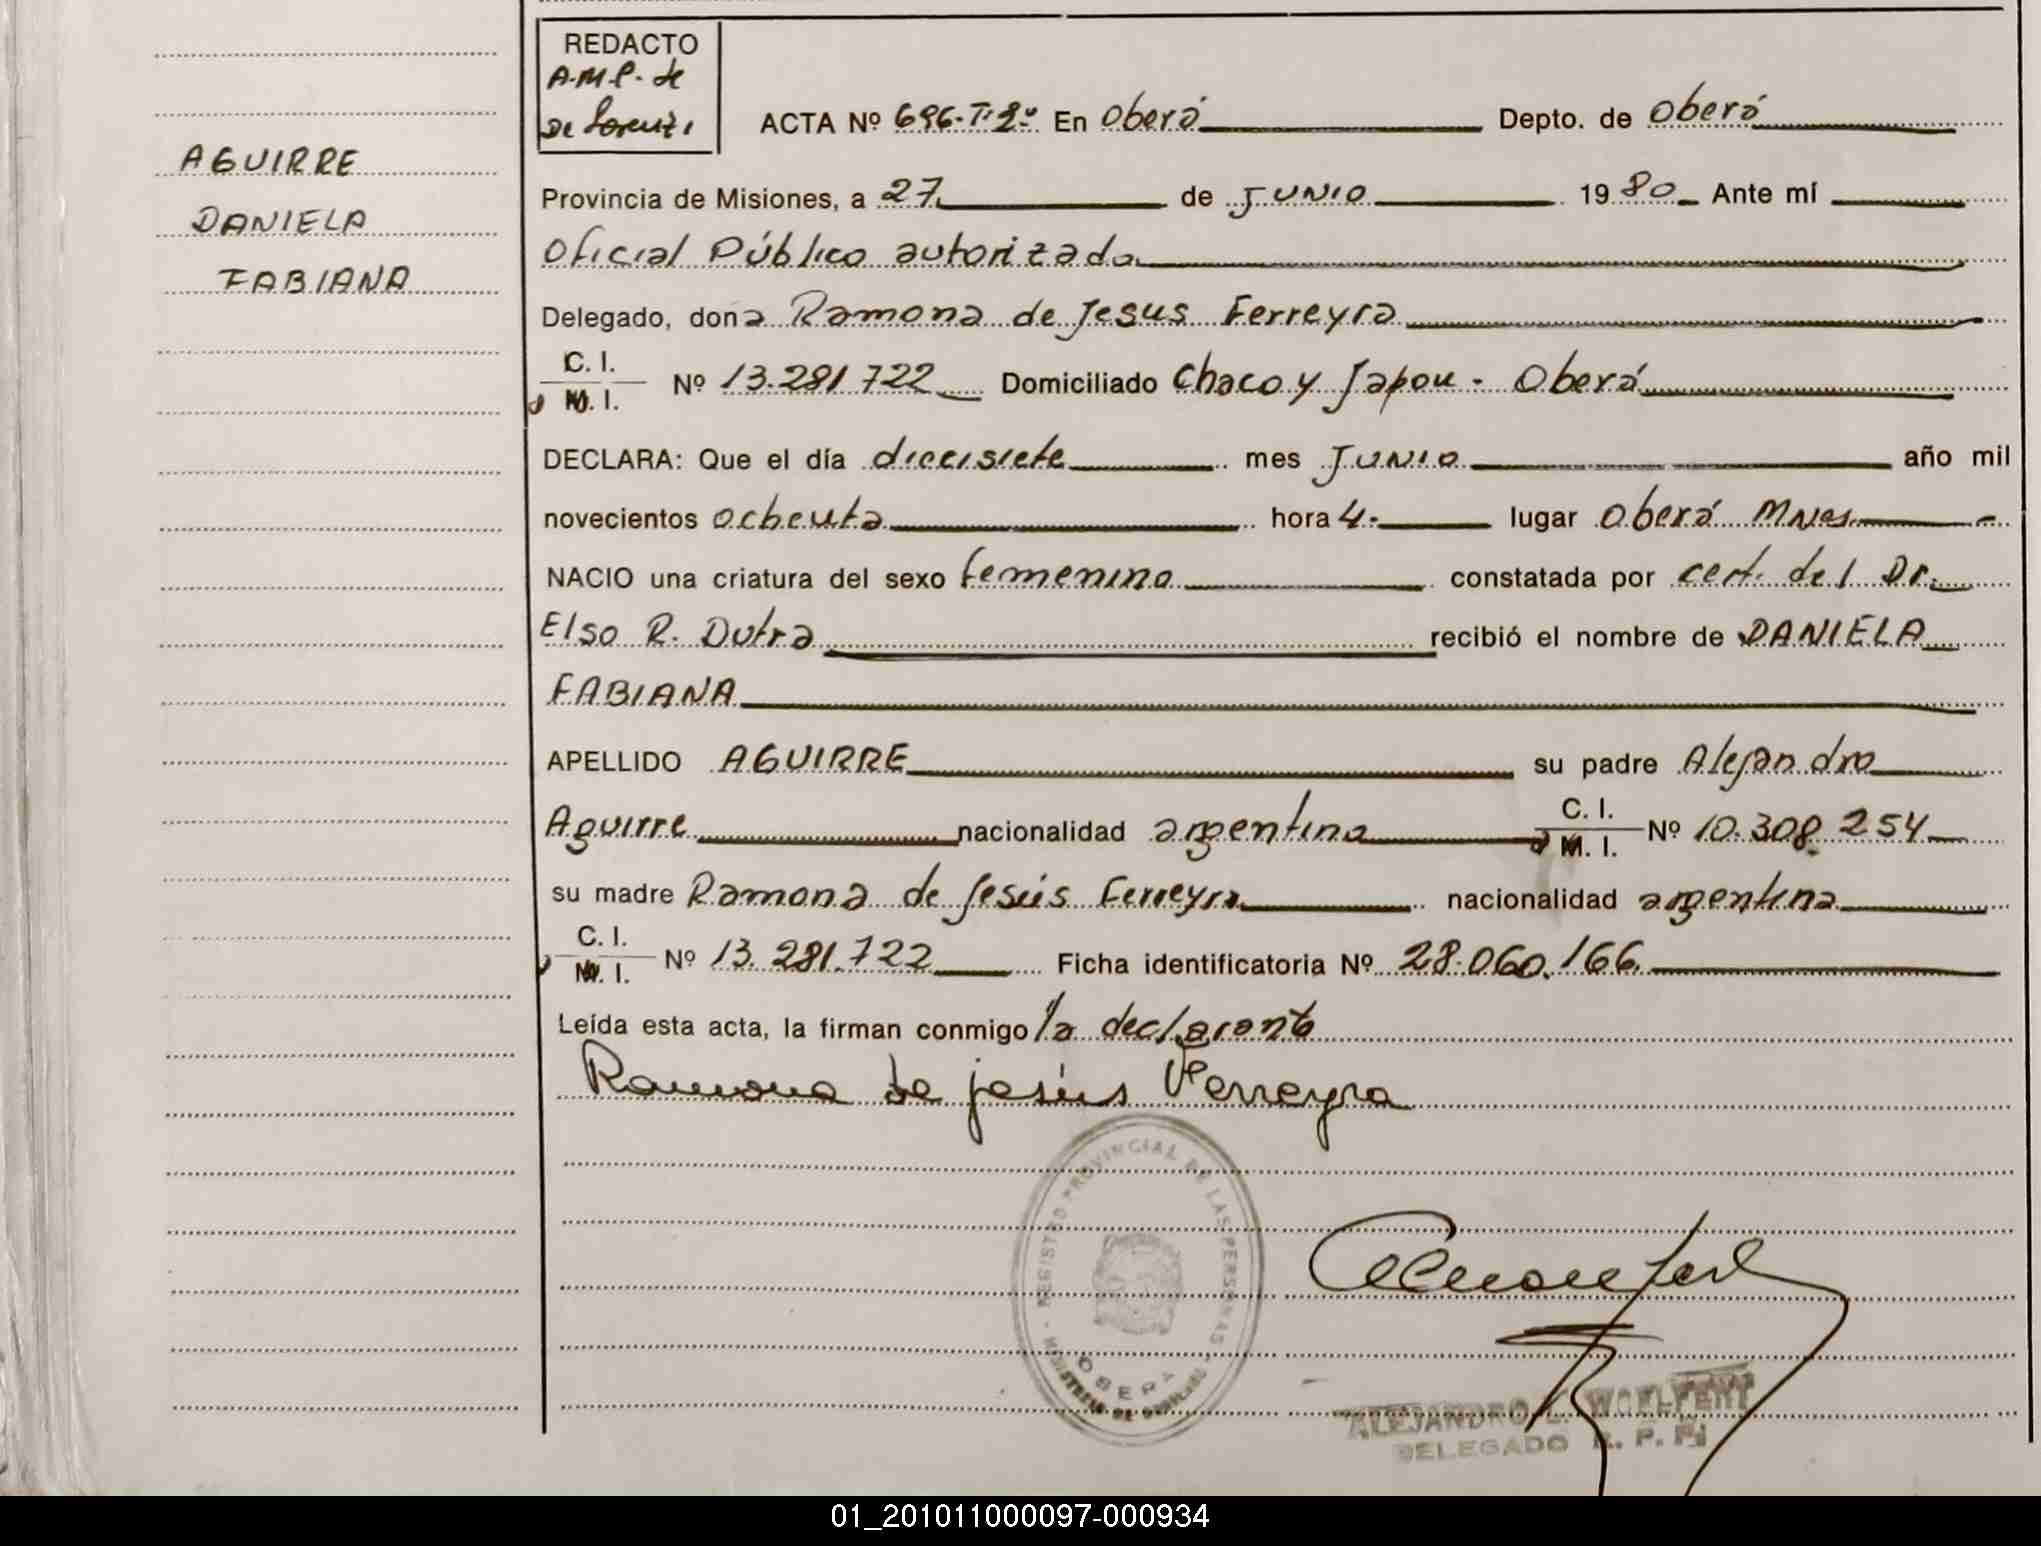 REDACTO
A.M.P. de
De Lorenzi
AGUIRRE
DANIELA
FABIANA
ACTA Nº 696-T-2º En Oberá Depto. de Oberá
Provincia de Misiones, a 27 de JUNIO 1980 Ante mí
Oficial Público autorizado
Delegado, dona Ramona de Jesus Ferreyra
C. I.
M. I. Nº 13.281.722 Domiciliado Chaco y Japon - Oberá
DECLARA: Que el día diecisiete mes JUNIO año mil
novecientos ochenta hora 4- lugar Oberá Mnes.
NACIO una criatura del sexo femenino constatada por cert. del Dr.
Elso R. Dutra recibió el nombre de DANIELA
FABIANA
APELLIDO AGUIRRE su padre Alejandro
Aguirre nacionalidad argentina C. I. M. I. Nº 10.308.254
su madre Ramona de Jesús Ferreyra nacionalidad argentina
C. I.
M. I. Nº 13.281.722 Ficha identificatoria Nº 28.060.166
Leída esta acta, la firman conmigo la declarante
Ramona de jesús Ferreyra
REGISTRO PROVINCIAL DE LAS PERSONAS
OBERA
ALEJANDRO WOELFERT
DELEGADO R. P. P.
01_201011000097-000934